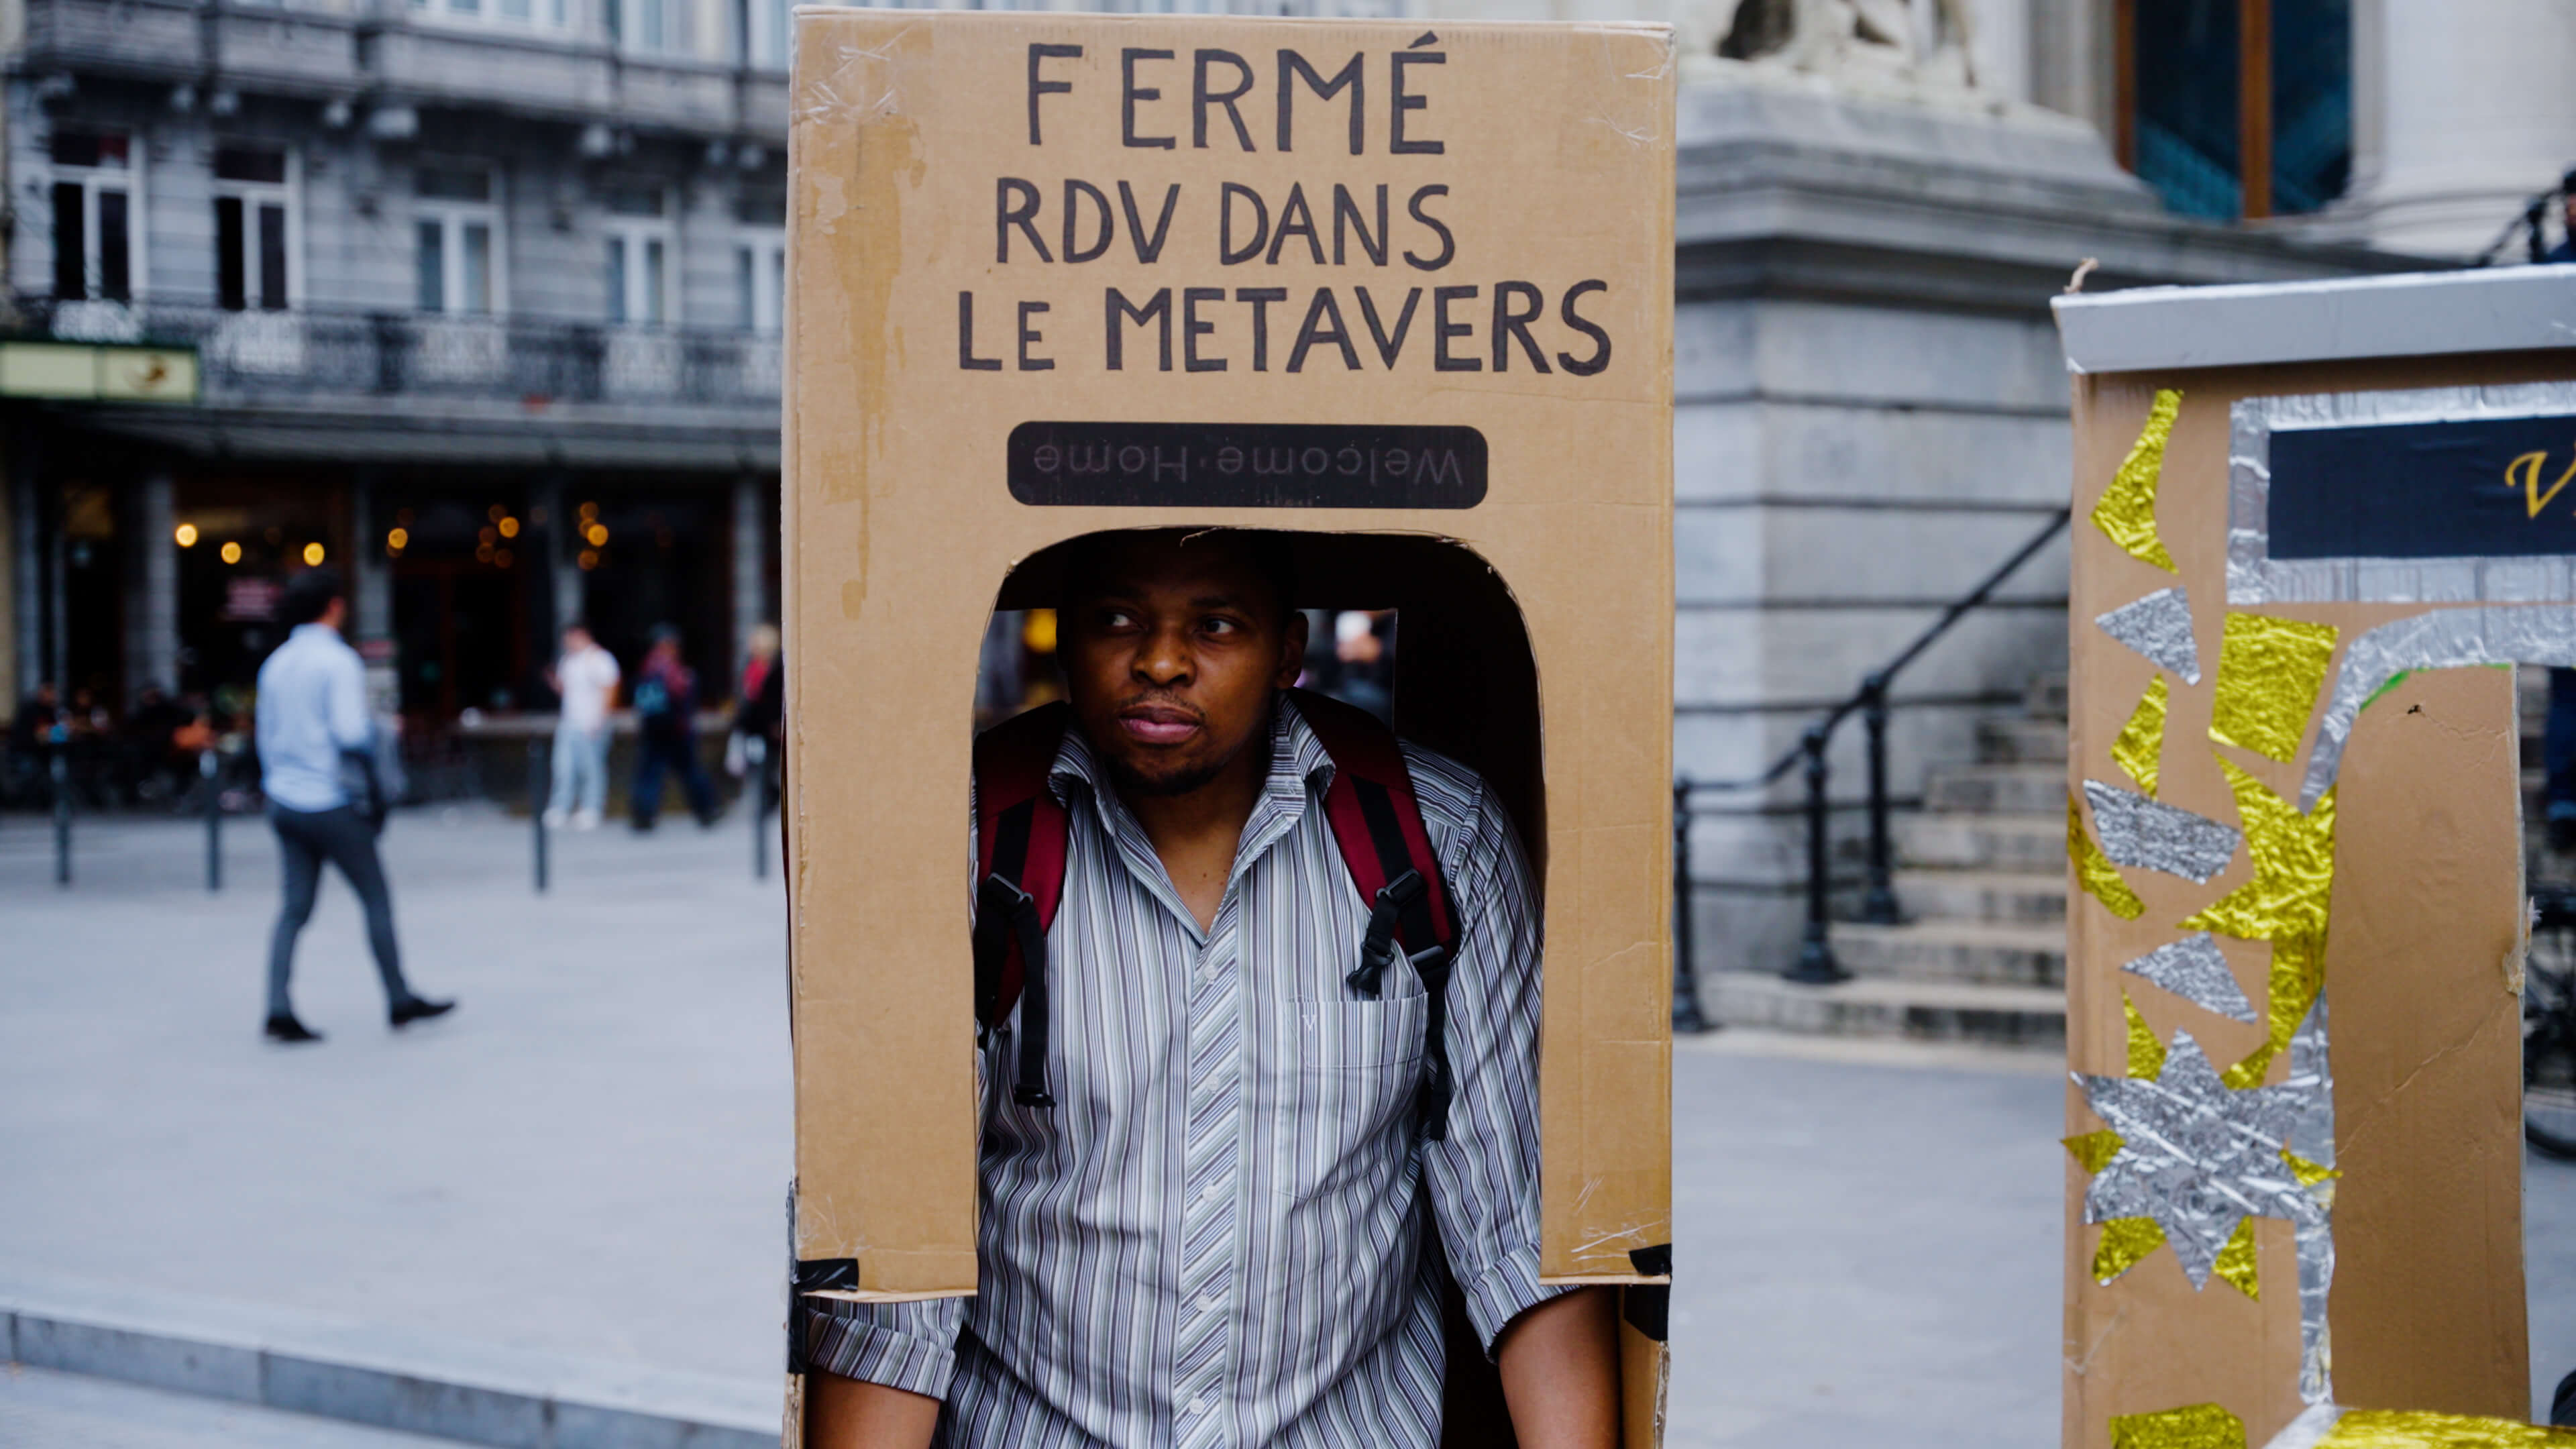 FERMÉ
RDV DANS
LE METAVERS
Welcome Home